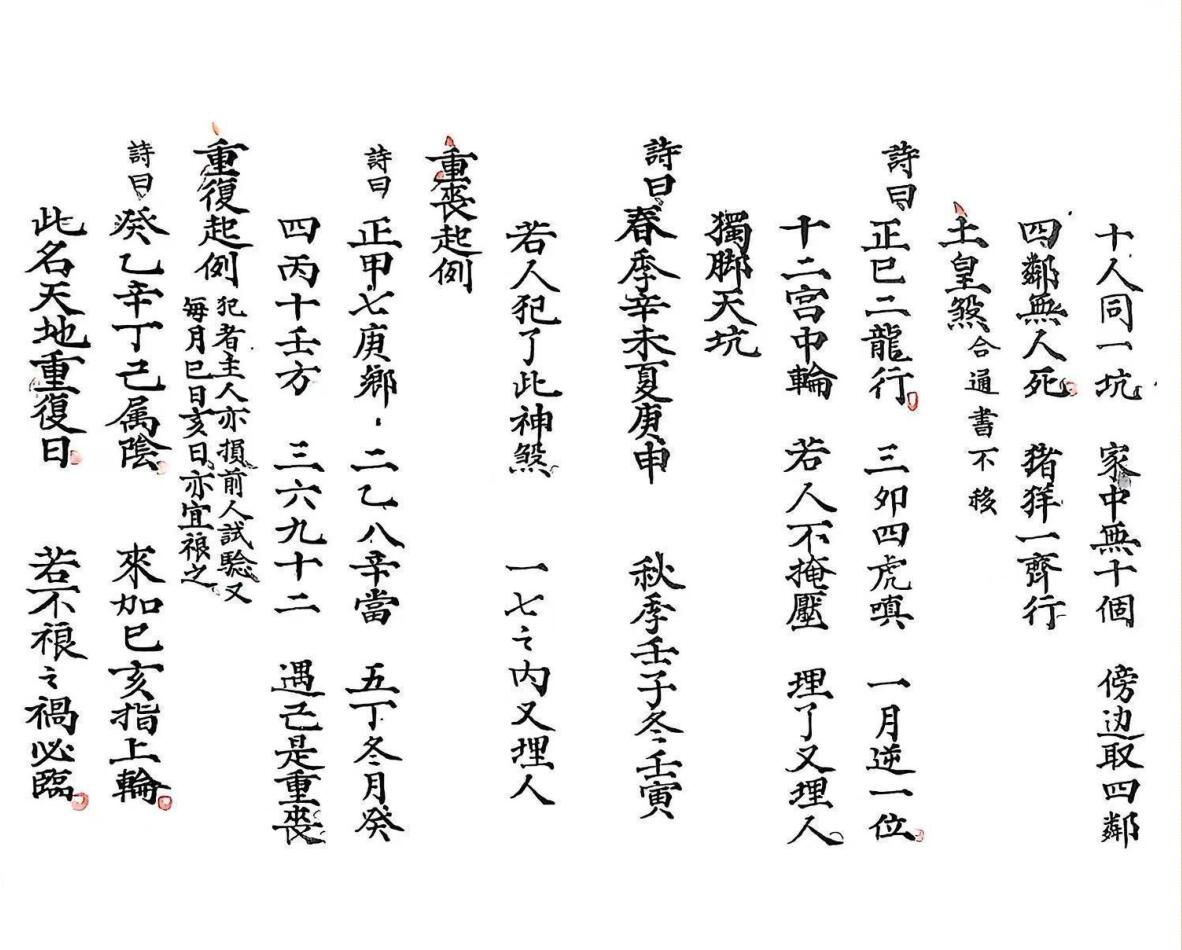 十人同一坑 家中無十個 傍边取四鄰
四鄰無人死 猪羊一齊行
土皇煞 合通書不移
詩曰 正巳二龍行 三卯四虎嗔 一月逆一位
十二宮中輪 若人不掩壓 埋了又埋人
獨脚天坑
詩曰 春季辛未夏庚申 秋季壬子冬壬寅
若人犯了此神煞 一七之内又埋人
重丧起例
詩曰 正甲七庚鄉 二乙八辛當 五丁冬月癸
四丙十壬方 三六九十二 遇己是重丧
重復起例 犯者主人亦損前人試驗又
每月巳日亥日亦宜禳之
詩曰 癸乙辛丁己属陰 來加巳亥指上輪
此名天地重復日 若不禳之禍必臨